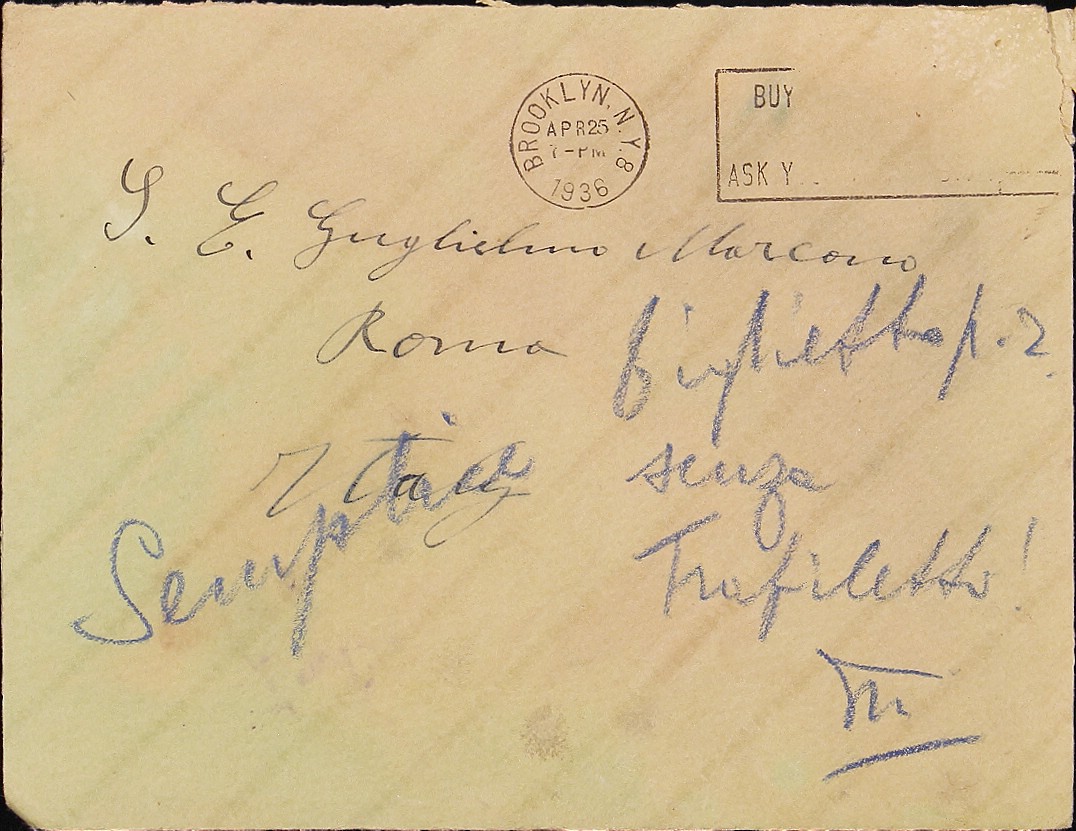 BROOKLYN. N.Y. 8
APR 25
7-PM
1936
BUY
ASK Y
S. E. Guglielmo Marcono
Roma
Italy
biglietto p. 2
senza
Trafiletto!
Semplice